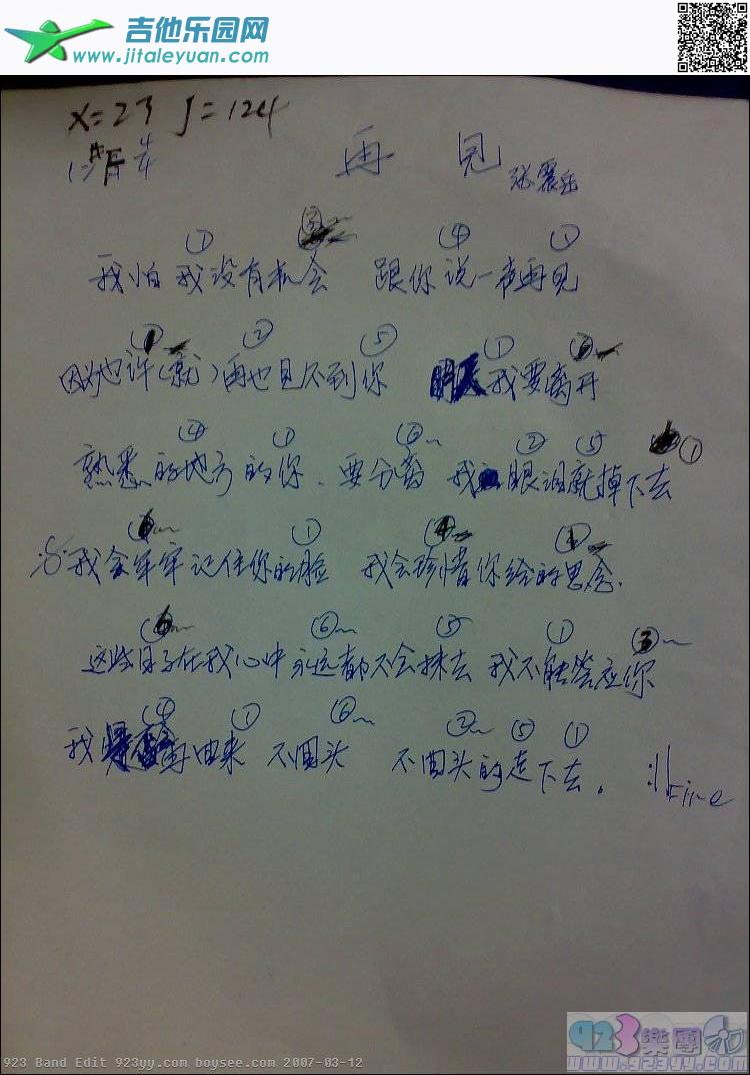 吉他乐园网
www.jitaleyuan.com
X=23 J=124
1=#F 4/4
再见
张震岳
① ③~ ④ ①
我怕我没有机会 跟你说一声再见
① ② ⑤ ①
因为也许(就)再也见不到你 明天我要离开
④ ① ⑥~ ② ⑤ ①
熟悉的地方的你、要分离 我眼泪就掉下去
⑥~ ① ④ ①
我会牢牢记住你的脸 我会珍惜你给的思念、
⑥~ ⑥~ ⑤ ① ③~
这些日子在我心中永远都不会抹去 我不能答应你
④ ① ⑥~ ② ~ ⑤ ①
我再回来 不回头 不回头的走下去。 :|| Fine
923 Band Edit 923yy.com boysee.com 2007-03-12
923樂團
www.923yy.com